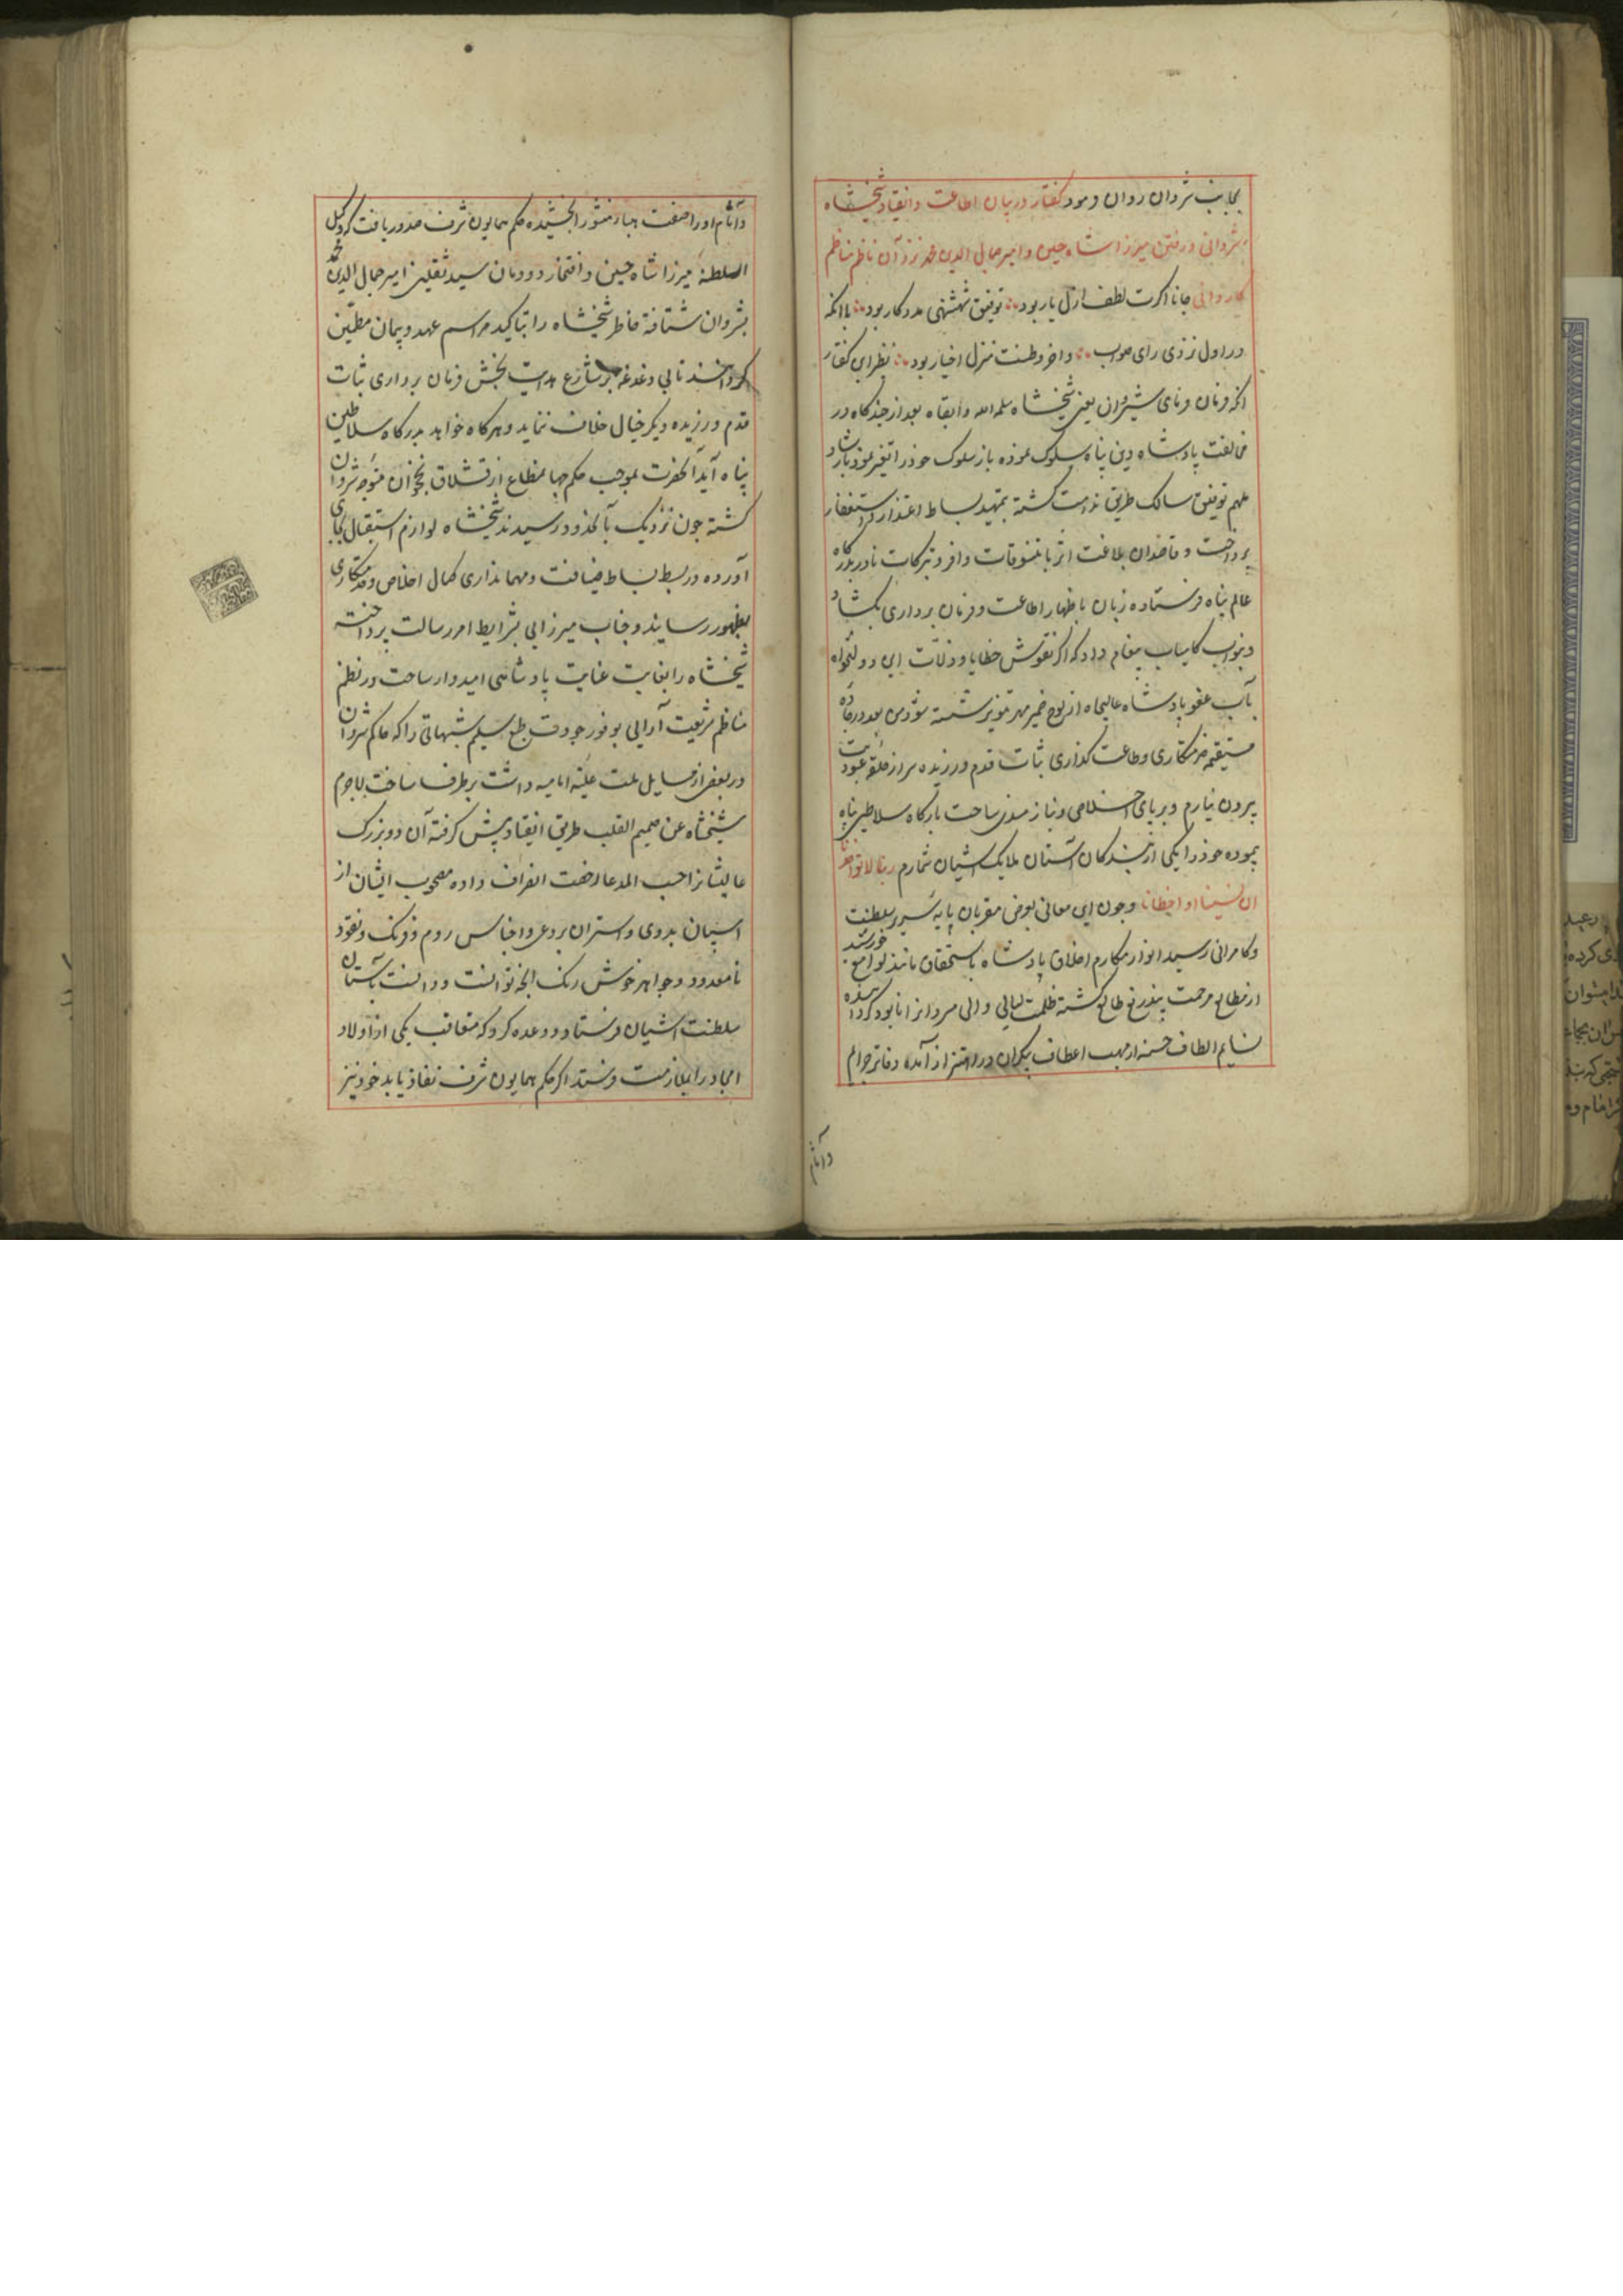 بجانب شروان روان فرمود گفتار در بیان اطاعت و انقیاد شیخشاه
شروانی و رفتن میرزا شاه حسین و امیر جمال الدین محمد نزد آن ناظم مناظم
کاردانی جانا اگرت لطف ازل یار بود توفیق شهنشهی مددکار بود با آنکه
در اول نزدی رای صواب واخر وطنت منزل اخیار بود نظر این گفتار
آنکه فرمان فرمای شیروان یعنی شیخشاه سلمه الله وابقاه بعد از چندگاه در
مخالفت پادشاه دین پناه سلوک نموده باز سلوک خود را تغییر نمود بارشاد
ملهم توفیق سالک طریق ندامت گشته بتمهید بساط اعتذار و استغفار
پرداخت و قاصدان بلاغت اثر با تنسوقات وافر و تبرکات نادر بدرگاه
عالم پناه فرستاده زبان باظهار اطاعت و فرمان برداری بگشاد
و بنواب کامیاب پیغام داد که اگر نقوش خطایا و زلات این دولتخواه
بآب عفو پادشاه عالیجاه از لوح ضمیر مهر تنویر شسته شود من بعد در جاده
مستقیمه خدمتکاری و طاعت گذاری ثبات قدم ورزیده سر از حلقه عبودیت
بیرون نیارم و بپای اخلاص و نیاز ساحت بارگاه سلاطین پناه
پیموده خود را یکی از بندگان آستان ملایک اشیان شمارم ربنا لا تؤاخذنا
ان نسینا او اخطانا و چون این معانی بعرض مقربان پایه سریر سلطنت
و کامرانی رسید انوار مکارم اخلاق پادشاه باستحقاق مانند لوامع خورشید
از مطالع مرحمت بیدریغ طالع گشته ظلمت لیالی والی شروانرا نابود گردانیده
نسایم الطاف خسروانه از مهب اعطاف بیکران در اهتزاز آمده دفاتر جرایم
وآثام
وآثام او را صفت هباء منثورا بخشیده حکم همایون شرف صدور یافت که وکیل
السلطنه میرزا شاه حسین و افتخار دودمان سید ثقلین امیر جمال الدین محمد
بشروان شتافته خاطر شیخشاه را بتاکید مراسم عهد و پیمان مطمئن
گردانند تا بی دغدغه بر شارع هدایت بخش فرمان برداری ثبات
قدم ورزیده دیگر خیال خلاف ننماید و هرگاه خواهد بدرگاه سلاطین
پناه آید آنحضرت بموجب حکم جهانمطاع از قشلاق نخجوان متوجه شروان
گشته چون نزدیک بآنحدود رسیدند شیخشاه لوازم استقبال بجای
آورده در بسط بساط ضیافت و مهمانداری کمال اخلاص و خدمتکاری
بظهور رسانید و جناب میرزایی بشرایط امر رسالت پرداخته
شیخشاه را بغایت عنایت پادشاهی امیدوار ساخت و نظم
مناظم شریعت آرایی بوفور جودت طبع سلیم شبهاتی را که حاکم شروان
در بعضی از مسایل ملت علیه امامیه داشت برطرف ساخت لاجرم
شیخشاه عن صمیم القلب طریق انقیاد پیش گرفته آن دو بزرگ
عالیشانرا حسب المدعا رخصت انصراف داده مصحوب ایشان از
اسپان بدوی و استران بردعی و اجناس روم و فرنگ و نقود
نامعدود و جواهر خوش رنگ آنچه توانست و دانست بآستان
سلطنت اشیان فرستاد و وعده کرد که متعاقب یکی از اولاد
امجاد را بملازمت فرستد اگر حکم همایون شرف نفاذ یابد خود نیز